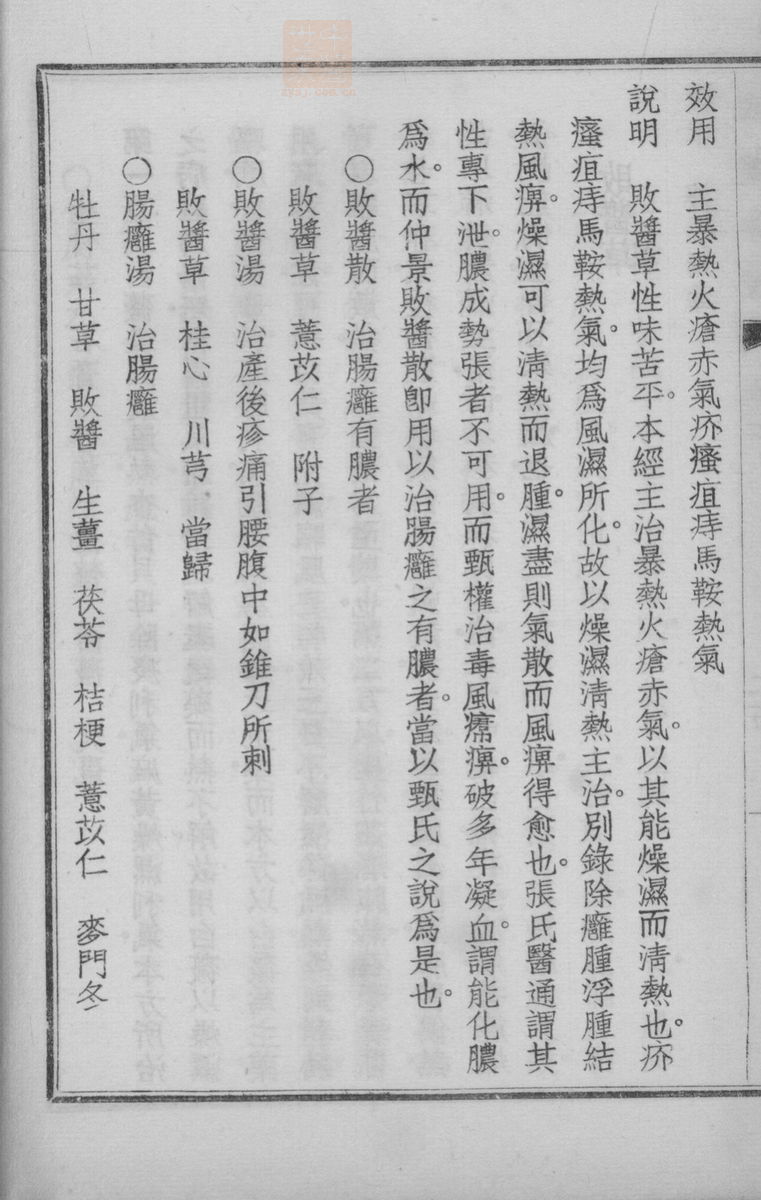 效用　主暴熱火瘡赤氣疥瘙疽痔馬鞍熱氣
說明　敗醬草性味苦平。本經主治暴熱火瘡赤氣。以其能燥濕而清熱也。疥
瘙疽痔馬鞍熱氣。均爲風濕所化。故以燥濕清熱主治。別錄除癰腫浮腫結
熱風痹。燥濕可以清熱而退腫。濕盡則氣散而風痹得愈也。張氏醫通謂其
性專下泄。膿成勢張者不可用。而甄權治毒風㾯痹。破多年凝血。謂能化膿
爲水。而仲景敗醬散卽用以治腸癰之有膿者。當以甄氏之說爲是也。
○敗醬散　治腸癰有膿者
敗醬草　薏苡仁　附子
○敗醬湯　治產後疹痛引腰腹中如錐刀所刺
敗醬草　桂心　川芎　當歸
○腸癰湯　治腸癰
牡丹　甘草　敗醬　生薑　茯苓　桔梗　薏苡仁　麥門冬
zysj.com.cn